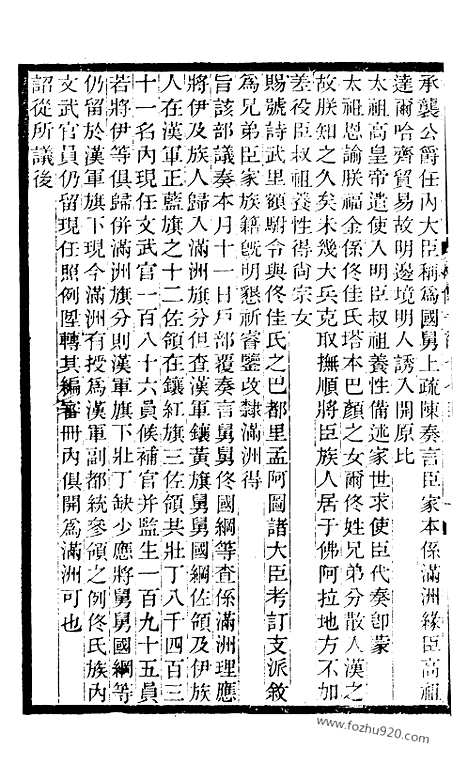 承襲公爵任內大臣稱為國舅上疏陳奏言臣家本係滿洲緣臣高祖
達爾哈齊貿易故明邊境明人誘入開原比
太祖高皇帝遣使入明臣叔祖養性備述家世求使臣代奏卽蒙
太祖恩諭朕福金係佟佳氏塔本巴顏之女爾佟姓兄弟分散入漢之
故朕知之久矣未幾大兵克取撫順將臣族人居于佛阿拉地方不加
差役臣叔祖養性得尙宗女
賜號詩武里額駙令與佟佳氏之巴都里孟阿圖諸大臣考訂支派敘
為兄弟臣家族籍旣明懇祈睿鑒改隸滿洲得
旨該部議奏本月十一日戶部覆奏言舅舅佟國綱等查係滿洲理應
將伊及族人歸入滿洲旗分但查漢軍鑲黃旗舅舅國綱佐領及伊族
人在漢軍正藍旗之十二佐領在鑲紅旗三佐領共壯丁八千四百三
十一名內現任文武官一百八十六員候補官并監生一百九十五員
若將伊等俱歸併滿洲旗分則漢軍旗下壯丁缺少應將舅舅國綱等
仍留於漢軍旗下現今滿洲有授為漢軍副都統參領之例佟氏族內
文武官員仍留現任照例陞轉其編審冊內俱開為滿洲可也
詔從所議後
www.fozhu920.com